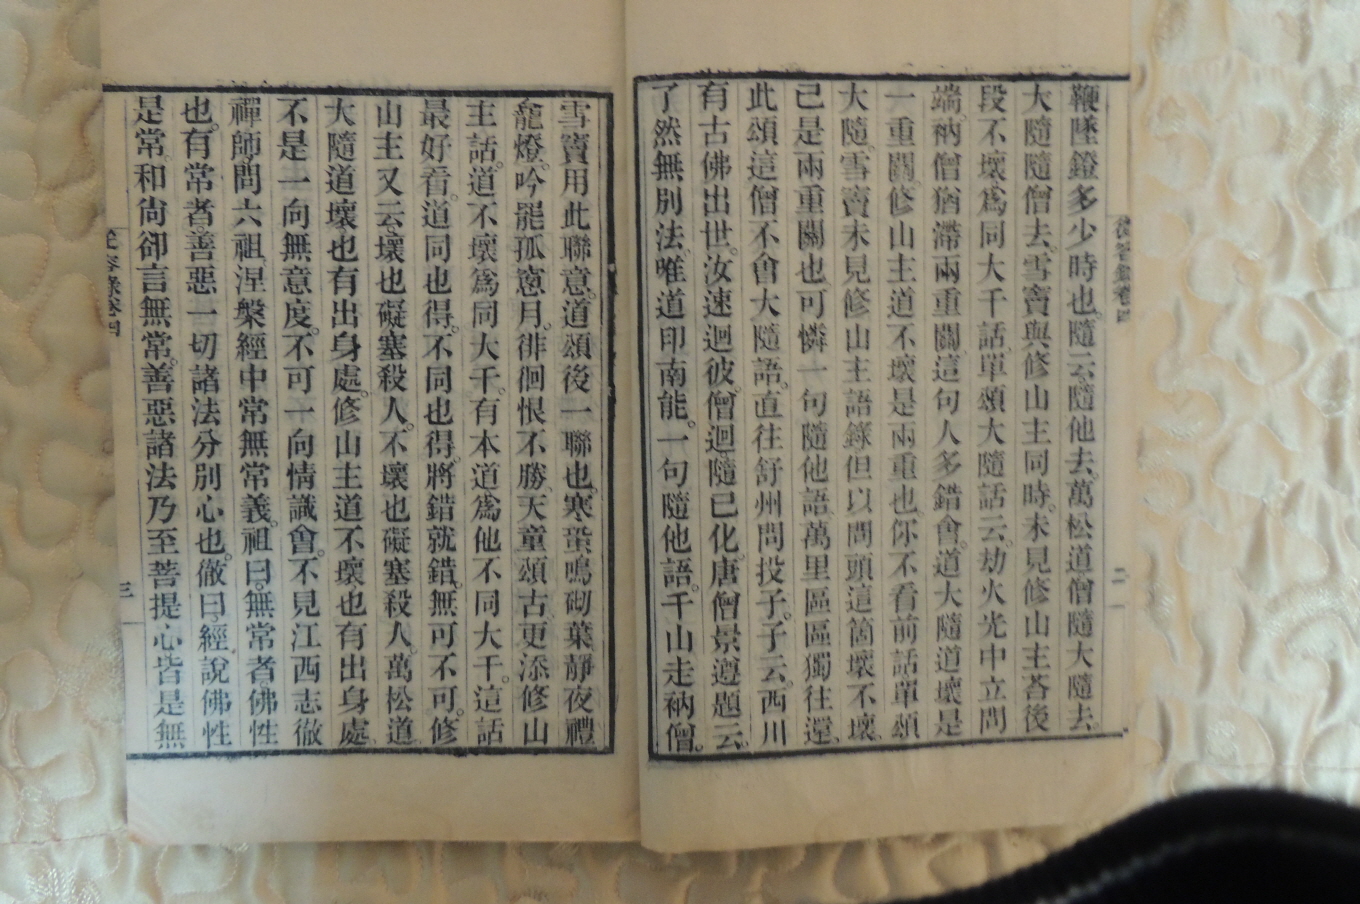 鞭墜鐙多少時也。隨云。隨他去。萬松道僧隨大隨去。
大隨隨僧去。雪竇與修山主同時。未見修山主荅後
段不壞爲同大千話。單頌大隨話云。劫火光中立問
端。衲僧猶滯兩重關。這句人多錯會。道大隨道壞是
一重關。修山主道不壞是兩重也。你不看前話單頌
大隨。雪竇未見修山主語錄。但以問頭這箇壞不壞。
已是兩重關也。可憐一句隨他語。萬里區區獨往還。
此頌這僧不會大隨語。直往舒州問投子。子云。西川
有古佛出世。汝速迴彼。僧迴。隨已化。唐僧景遵題云。
了然無別法。唯道印南能。一句隨他語。千山走衲僧。
從容錄卷四
二
雪竇用此聯意。道頌後一聯也。寒蛩鳴砌葉。靜夜禮
龕燈。吟罷孤窻月。徘徊恨不勝。天童頌古。更添修山
主話。道不壞爲同大千。有本道爲他不同大千。這話
最好看。道同也得。不同也得。將錯就錯。無可不可。修
山主又云。壞也礙塞殺人。不壞也礙塞殺人。萬松道
大隨道壞也有出身處。修山主道不壞也有出身處。
不是一向無意度。不可一向情識會。不見江西志徹
禪師。問六祖涅槃經中常無常義。祖曰。無常者佛性
也。有常者。善惡一切諸法分別心也。徹曰。經說佛性
是常。和尙卻言無常。善惡諸法乃至菩提心。皆是無
從容錄卷四
三